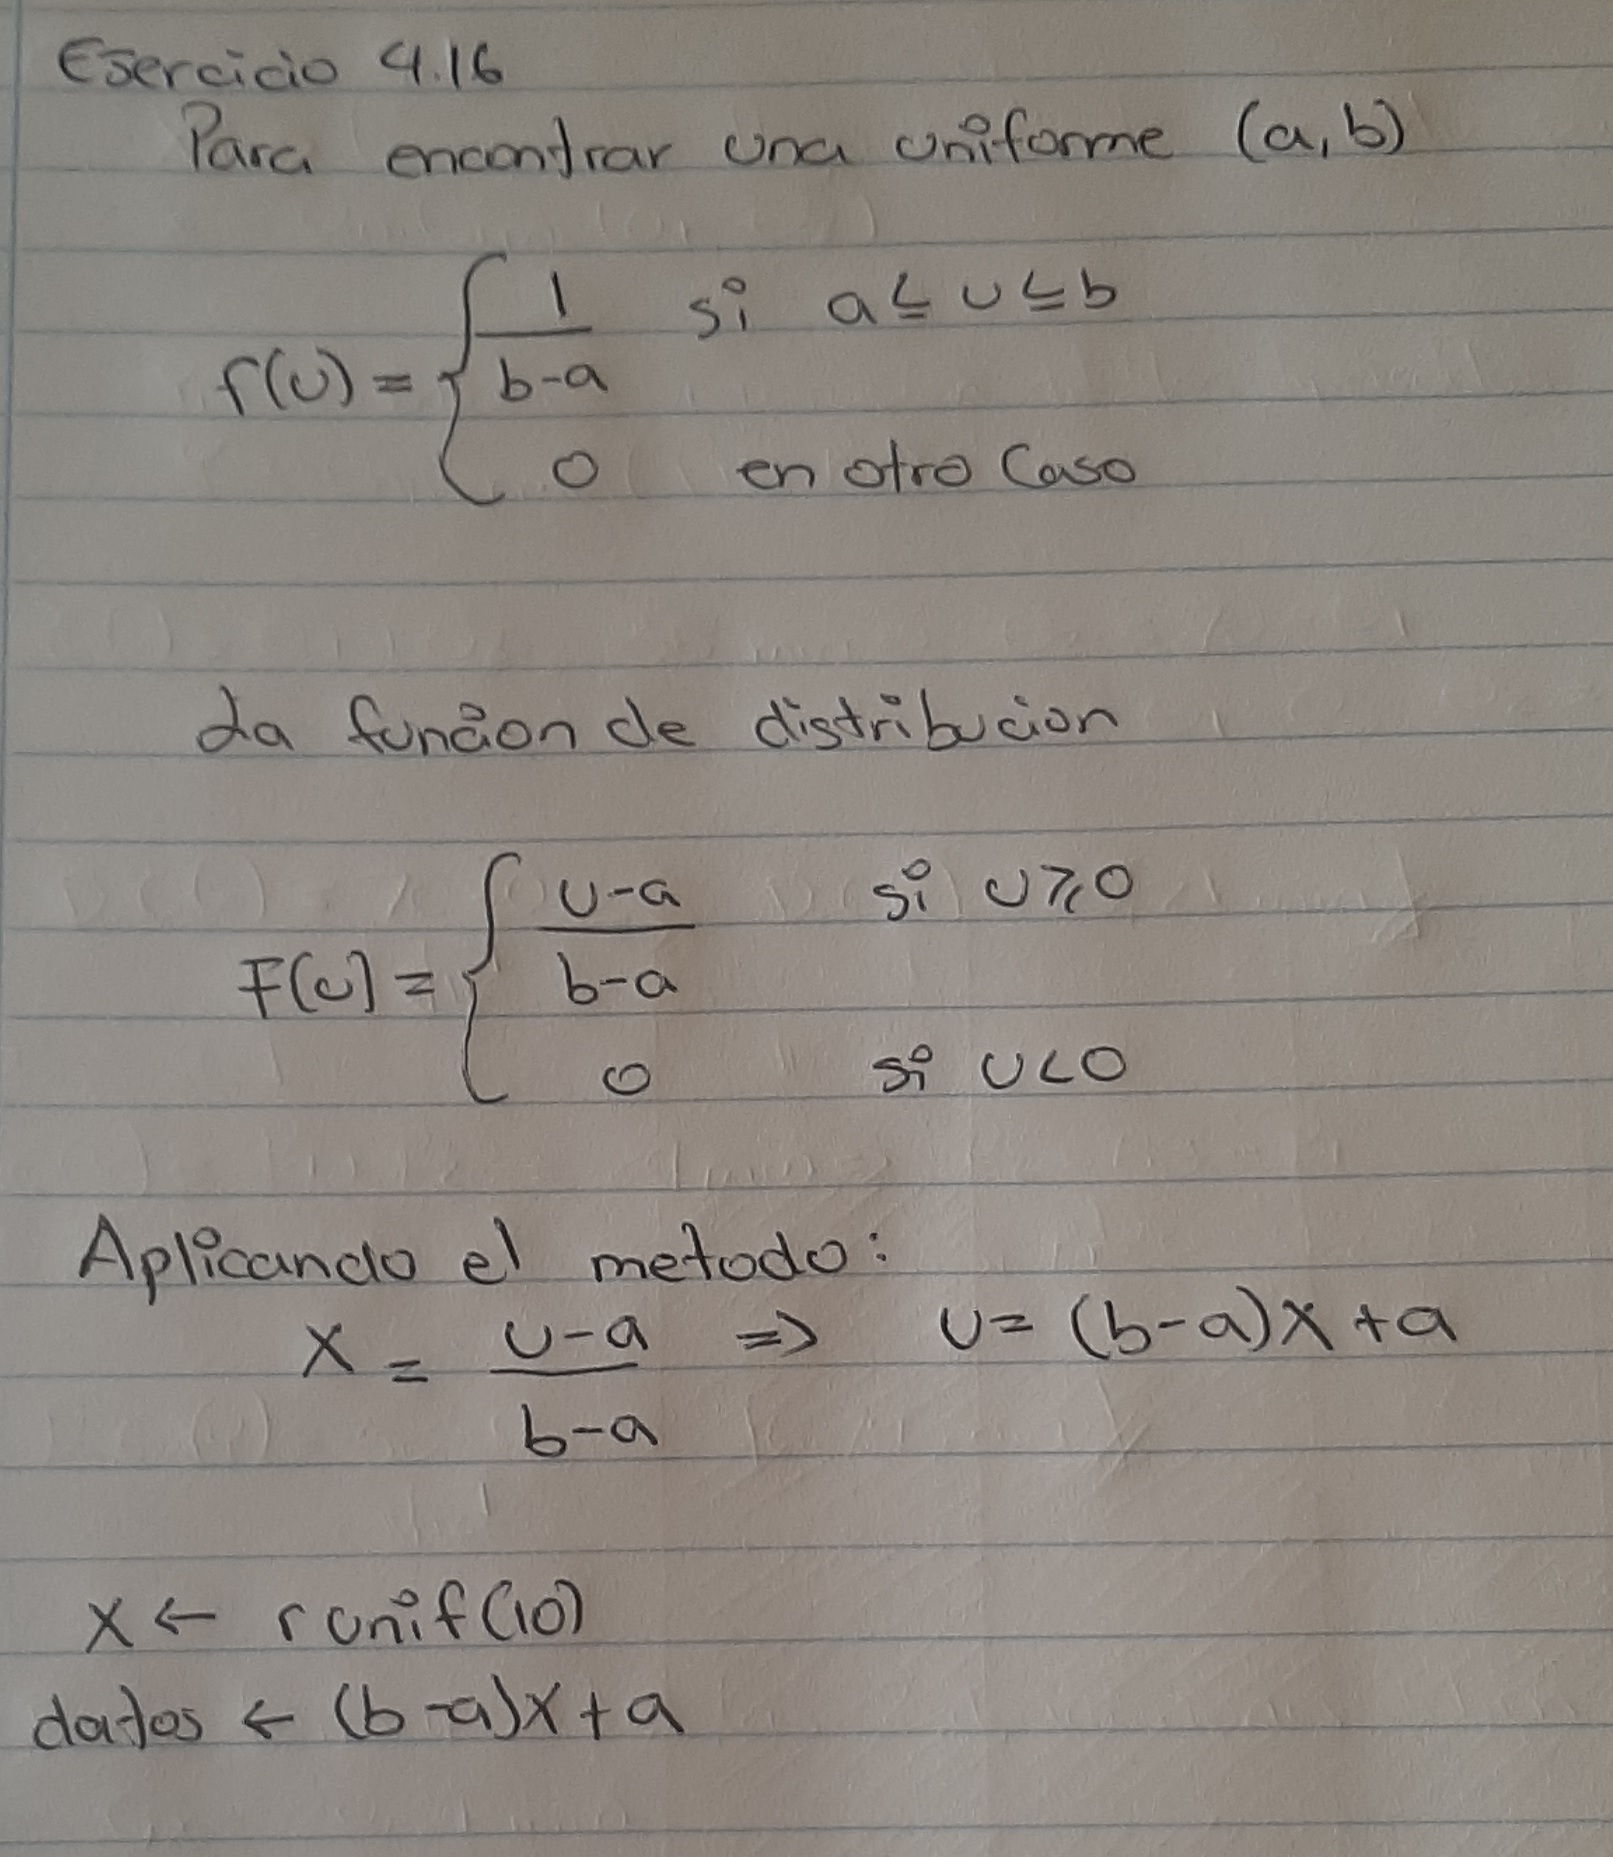 Ejercicio 4.16
Para encontrar una uniforme (a,b)
f(u) = { 1/(b-a) si a ≤ u ≤ b
0 en otro Caso
La función de distribucion
F(u) = { (u-a)/(b-a) si u ≥ 0
0 si u < 0
Aplicando el metodo:
x = (u-a)/(b-a) => u = (b-a)x + a
x ← runif(10)
datos ← (b-a)x + a